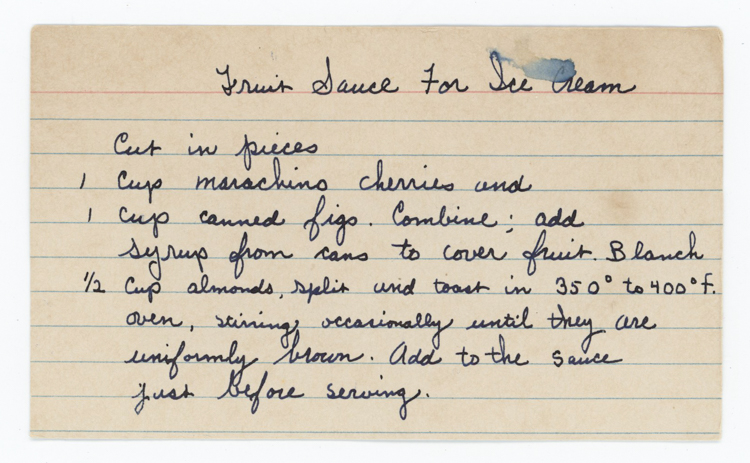 Fruit Sauce For Ice Cream
Cut in pieces
1 Cup marachino cherries and
1 cup canned figs. Combine; add
syrup from cans to cover fruit. Blanch
1/2 Cup almonds, split and toast in 350° to 400° f.
oven, stirring occasionally until they are
uniformly brown. Add to the sauce
just before serving.